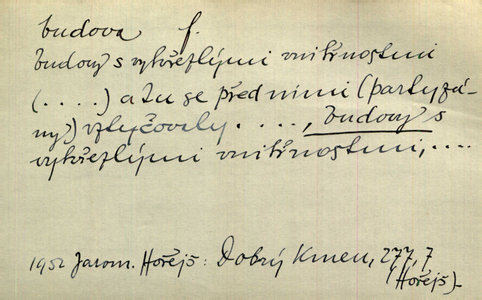 budova f.
budovy s vykřeflými vnitřnostmi
(....) a tu se před nimi (partyzá-
ny) vztyčovaly ...., budovy s
vykřeflými vnitřnostmi, ....
1952 Jarom. Hořejš: Dobrý Kmen, 277, 7
(Hořejš)